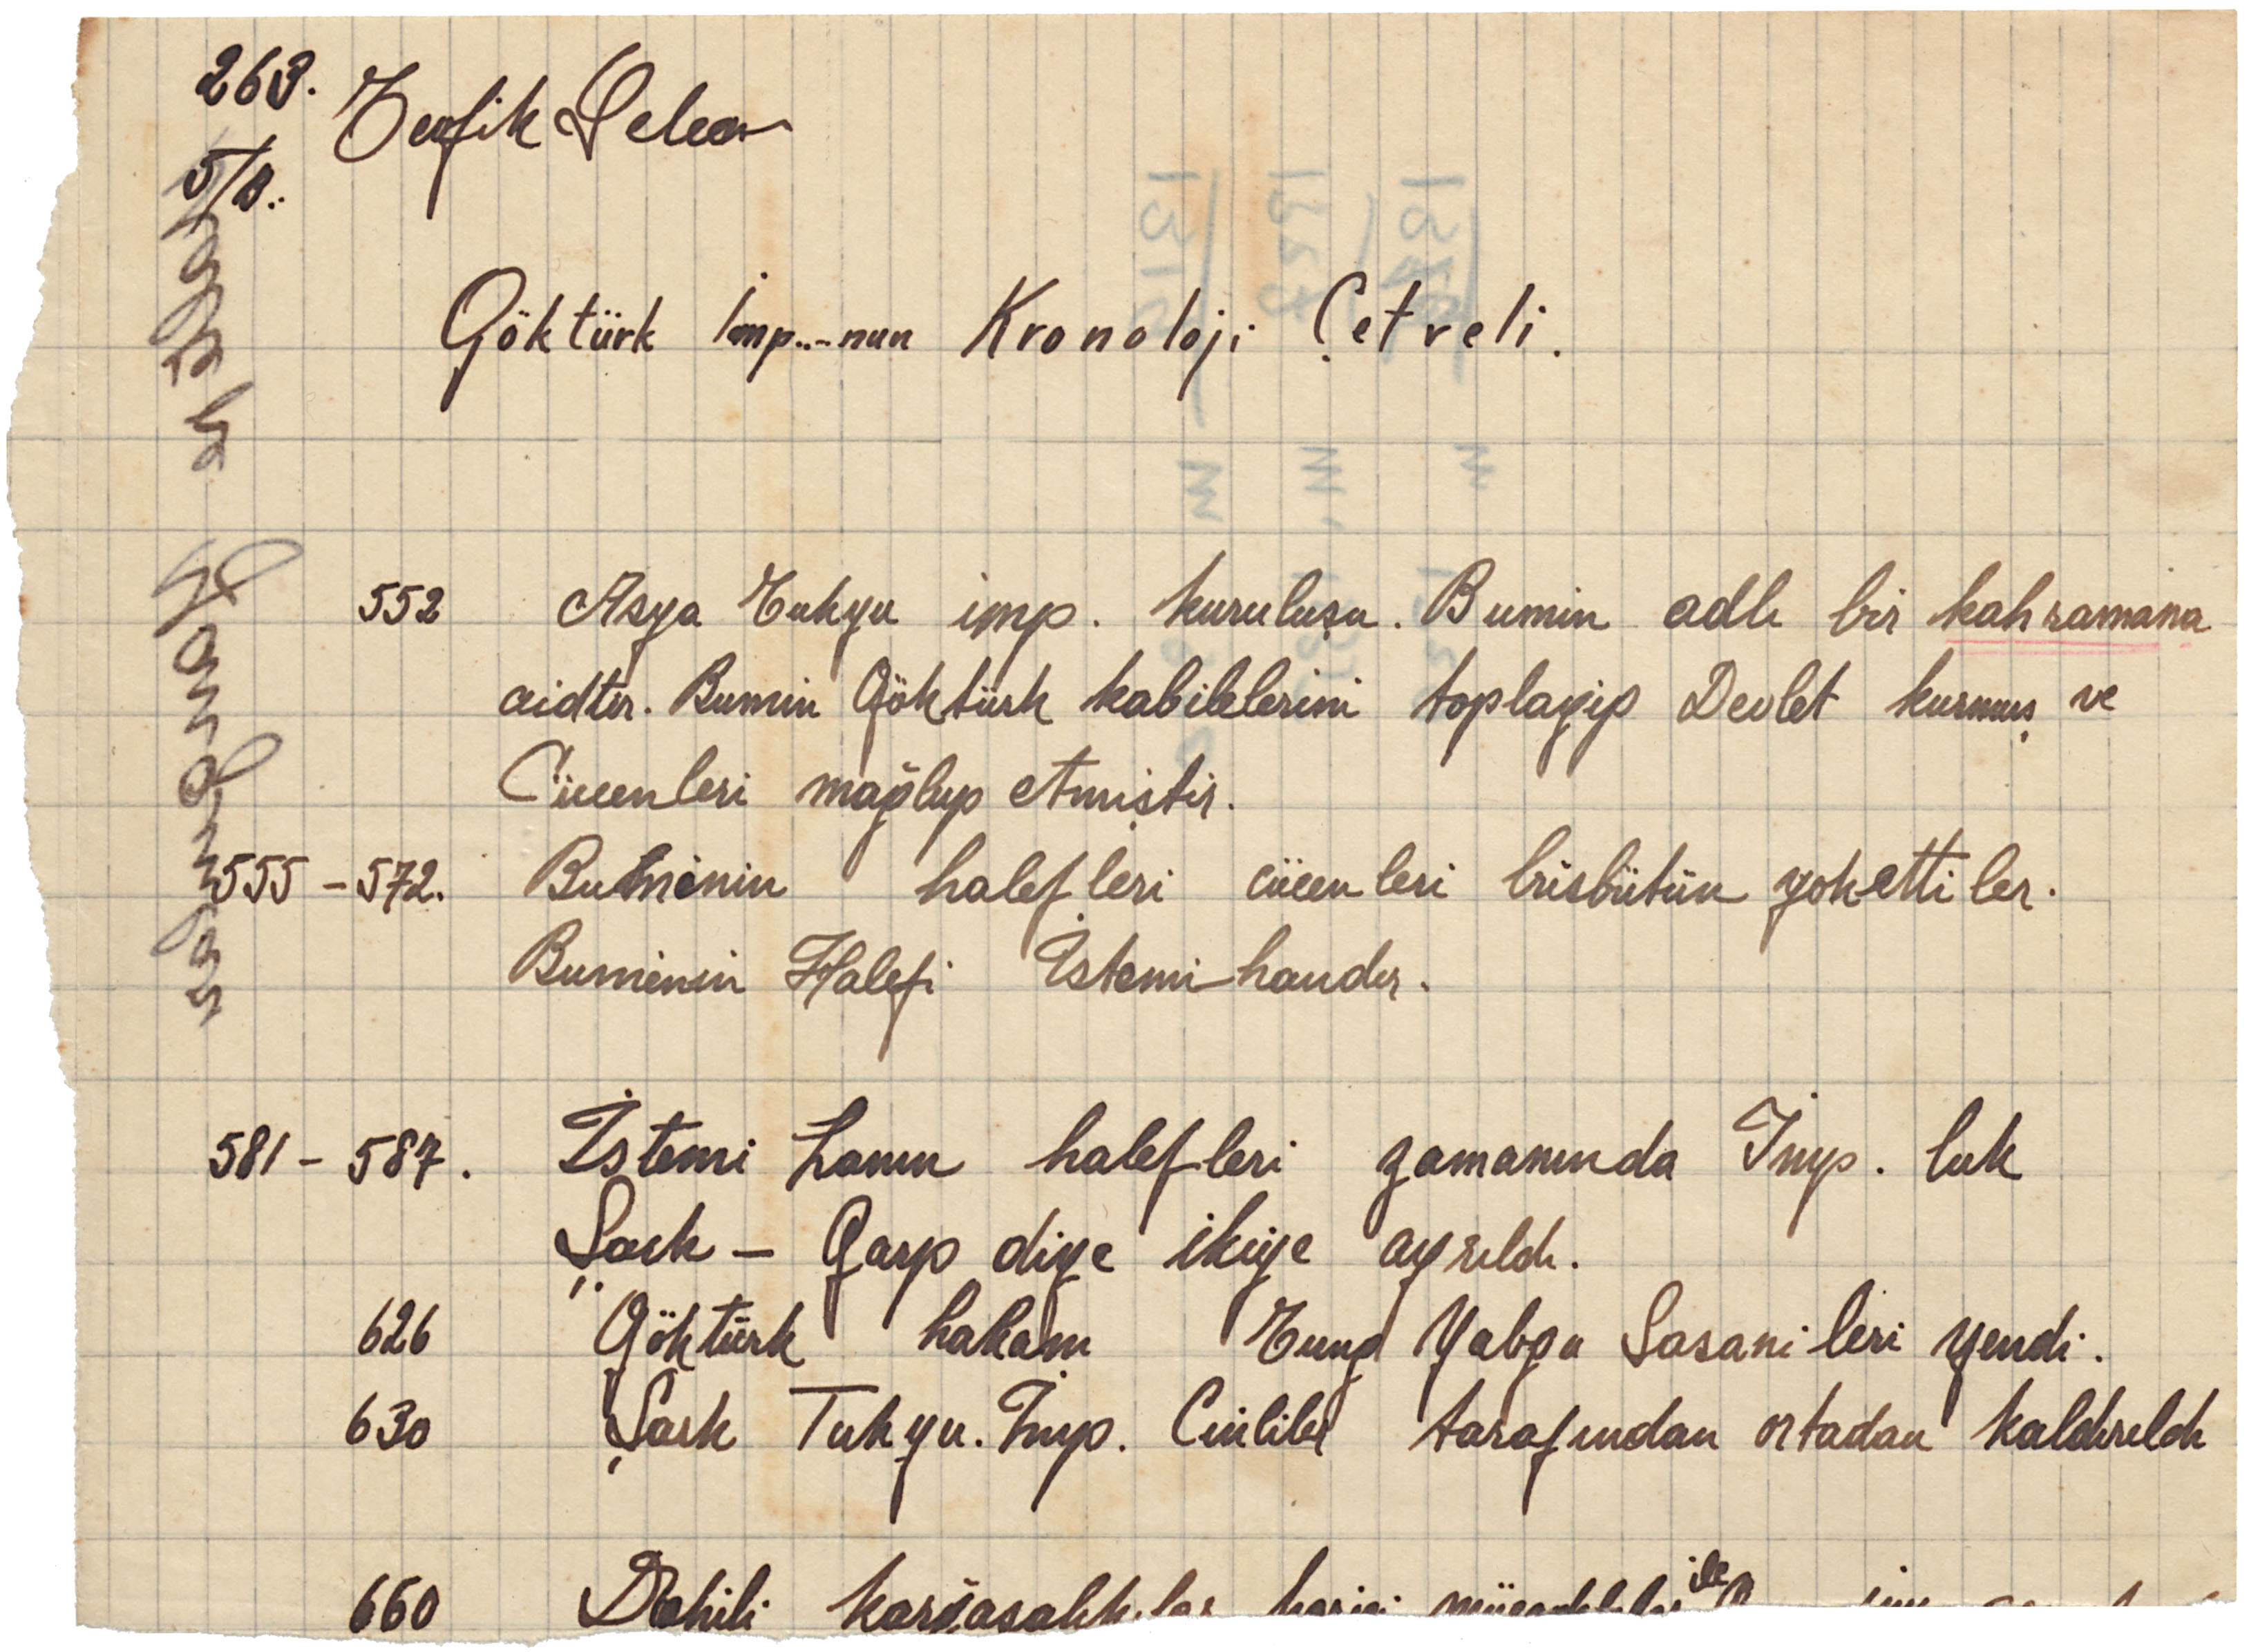 263. Tevfik
5/B.
Göktürk İmp..-nun Kronoloji Çetveli.
552 Asya Tukyu imp. kuruluşu. Bumin adlı bir kahramana
aidtır. Bumin Göktürk kabilelerini toplayip Devlet kurmuş ve
Cücenleri mağlup etmiştir.
555 - 572. Buminin halefleri cücenleri büsbütün yokettiler.
Buminin Halefi İstemi handır.
581 - 587. İstemi hanın halefleri zamanında İmp. luk
Şark - Garp diye ikiye ayrıldı.
626 Göktürk hakanı Tung Yabgu Sasanileri yendi.
630 Şark Tukyu. İmp. Çinliler tarafından ortadan kaldırıldı
660 Dahili karğaşalıklar harici mücadeleler ile